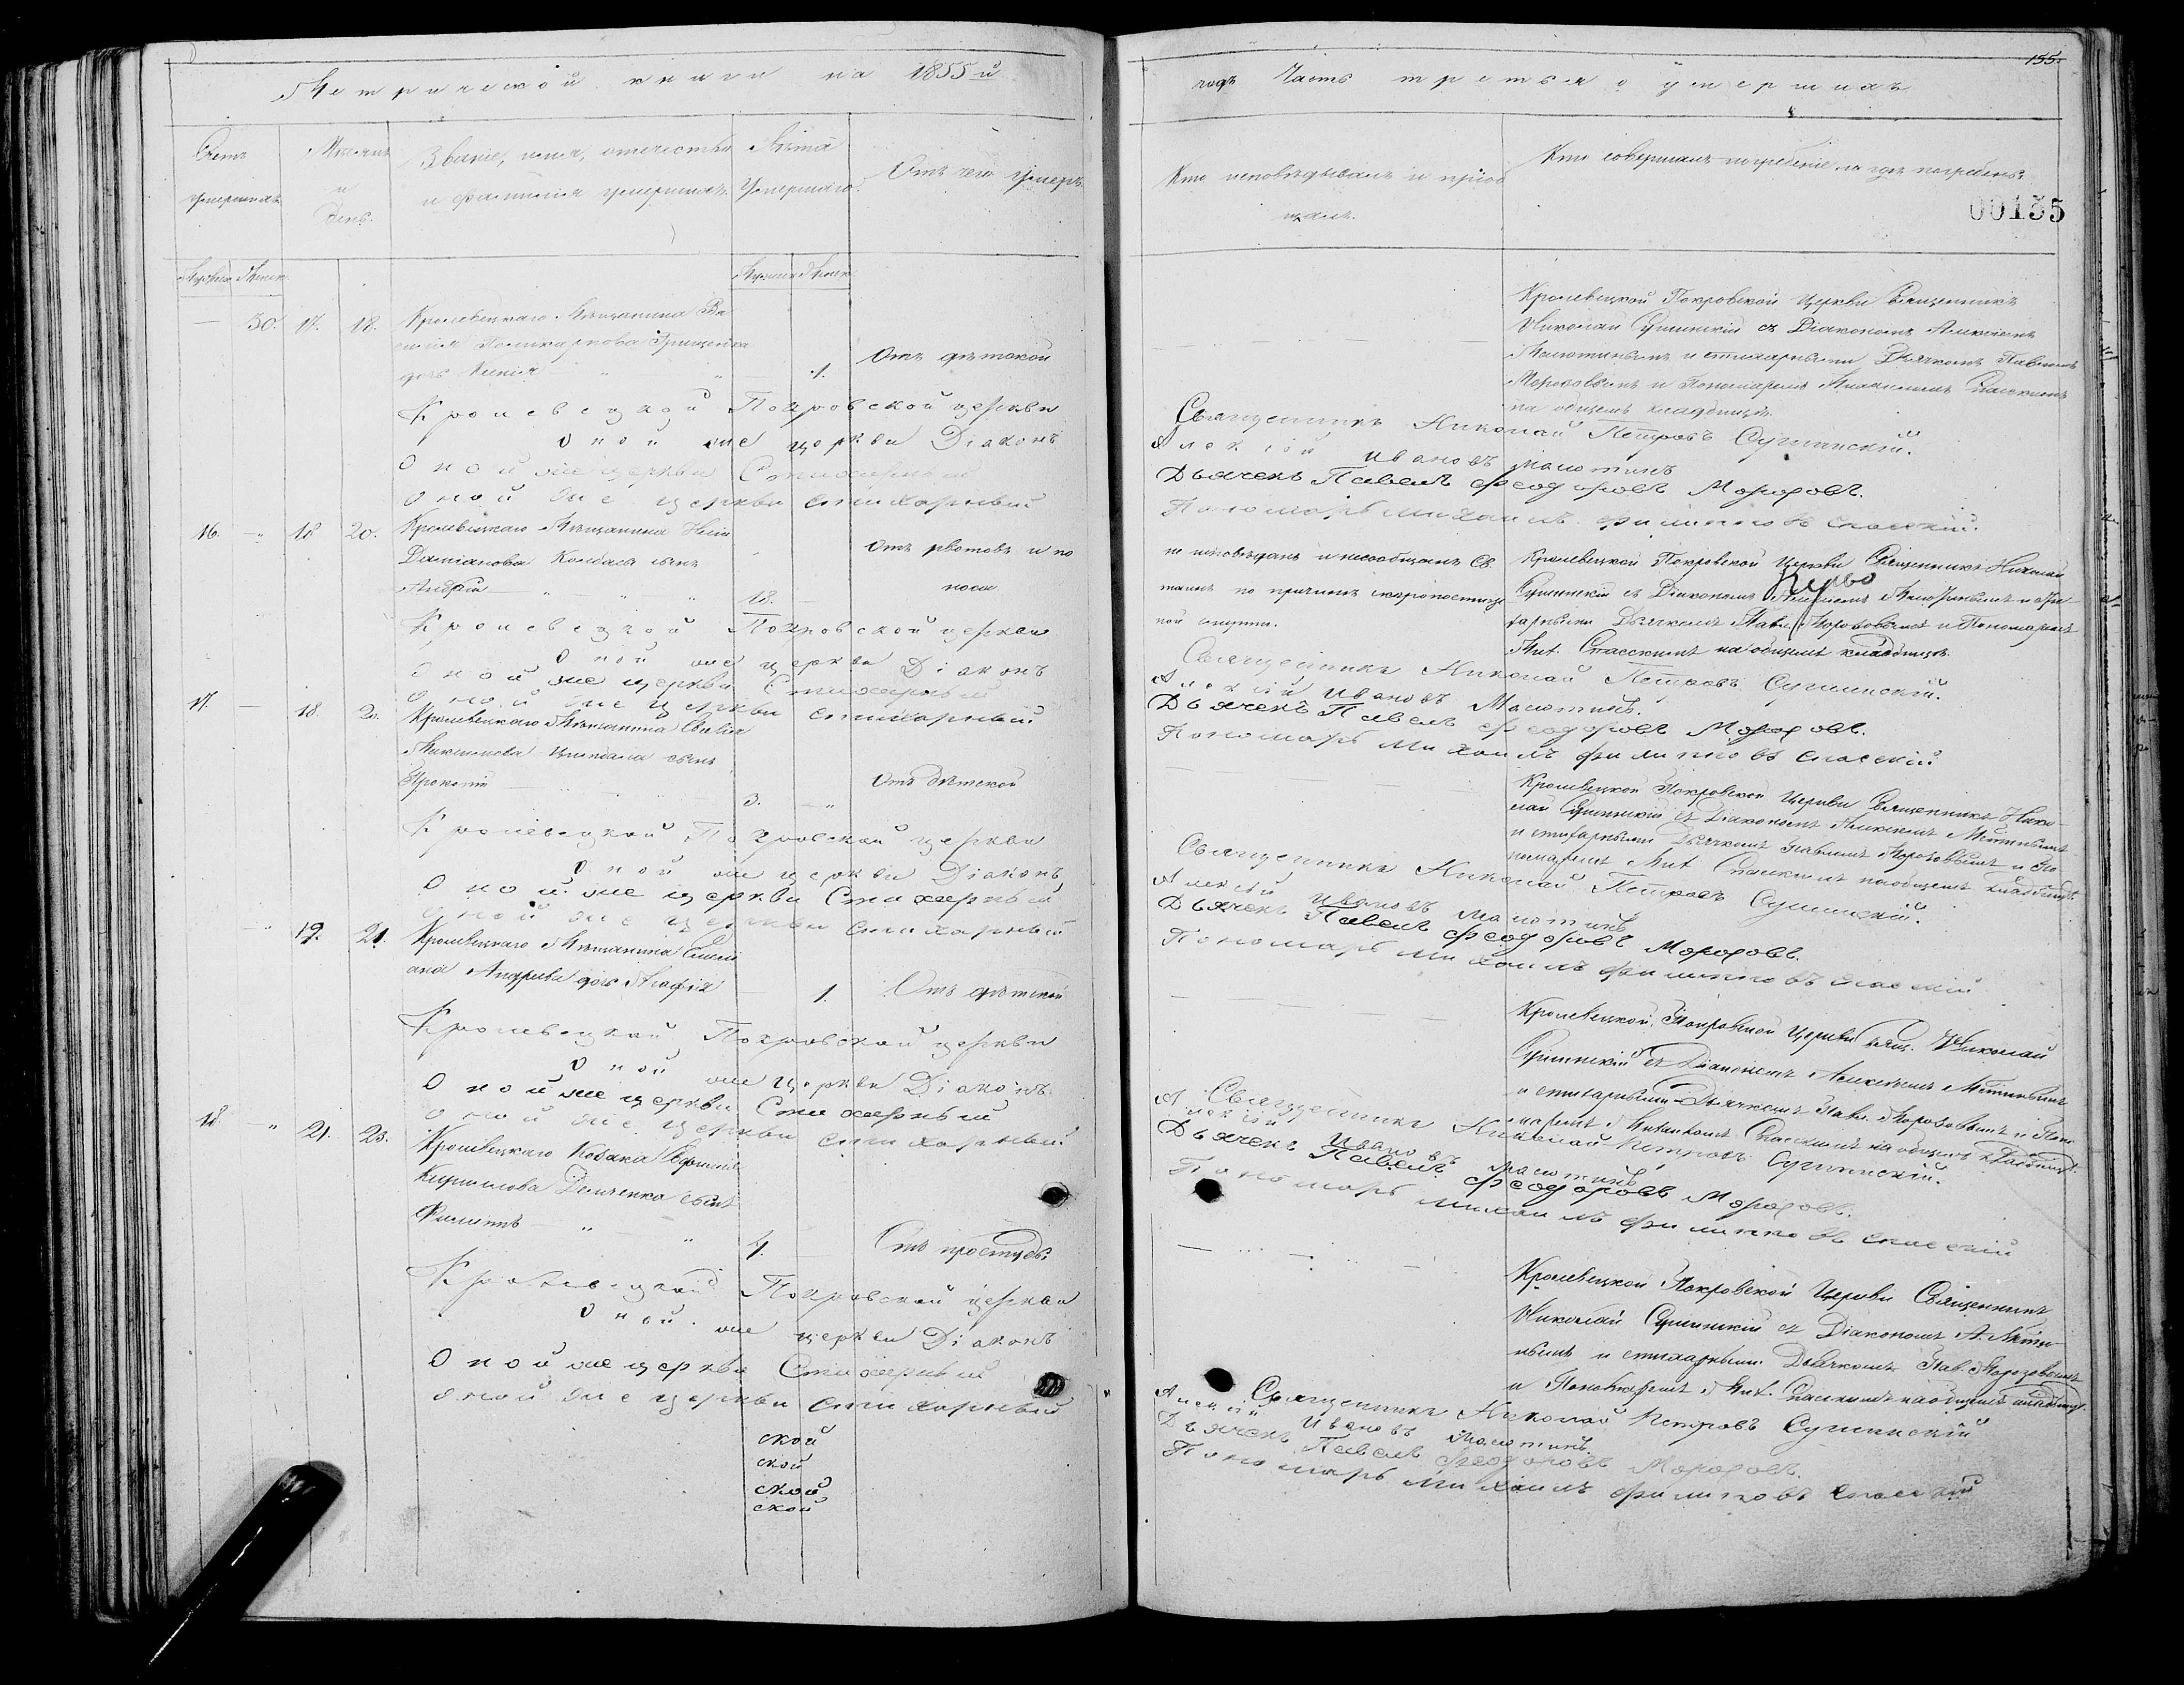 Метрической книги на 1855й
Счетъ
умершихъ
Мѣсяцъ
и
день.
Званіе, имя, отчество
и фамилія умершихъ.
Лѣта
Умершаго.
Отъ чего умеръ.
Мужеск. Женск.
Мужеск. Женск.
— 30. 17. 18. Кролевецкаго Мѣщанина Ва
силія Поликарпова Грищенка
дочь 1. Отъ дѣтской
Кролевецкой Покровской церкви
оной же церкви Діаконъ
Оной же церкви Стихарный
Оной же церкви стихарный
16. — 18 20. Кролевецкаго Мѣщанина
Даміанова Колбасы сынъ Отъ рвотовъ и по
Андрей 18. носа
Кролевецкой Покровской церкви
оной же церкви Діаконъ
Оной же церкви Стихарный
Оной же церкви стихарный
17. — 18. 20. Кролевецкаго Мѣщанина
сынъ
Прокопій 3. — Отъ дѣтской
Кролевецкой Покровской церкви
Оной же церкви Діаконъ
Оной же церкви Стихарный
Оной же церкви стихарный
19. 21. Кролевецкаго Мѣщанина
Андреева дочь Агафія 1. Отъ дѣтской
Кролевецкой Покровской церкви
Оной же церкви Діаконъ
Оной же церкви Стихарный
Оной же церкви стихарный
18 „ 21. 23. Кролевецкаго Козака
Кириллова Демченка сынъ
Филиппъ 4. Отъ простуды
Кролевецкой Покровской церкви
Оной же церкви Діаконъ
Оной же церкви Стихарный
Оной же церкви стихарный
ской
ской
ской
ской
155
годъ Часть третья о умершихъ
Кто исповѣдывалъ и пріоб
щалъ.
Кто совершалъ погребеніе и гдѣ погребены.
00155
Кролевецкой Покровской церкви Священникъ
Николай Сушинскій съ Діакономъ Алексіемъ
Малютинымъ и стихарными Дьячкомъ Павломъ
Морозовымъ и Пономаремъ Михаиломъ Спасскимъ
на общемъ кладбищѣ.
Священникъ Николай Петровъ Сушинскій.
Алексій Ивановъ Малютинъ
Дьячекъ Павелъ Федоровъ Морозовъ.
Пономарь Михаилъ Филиповъ Спасскій.
не исповѣданъ и несообщенъ Св.
таинъ по причинѣ скоропостиж
ной смерти.
Кролевецкой Покровской Церкви Священникъ Николай
Сушинскій съ Діакономъ Алексіемъ Малютинымъ и сти
харными Дьячкомъ Павл. Морозовымъ и Пономаремъ
Мих. Спасскимъ на общемъ кладбищѣ.
Священникъ Николай Петровъ Сушинскій.
Алексій Ивановъ Малютинъ.
Дьячекъ Павелъ Федоровъ Морозовъ.
Пономарь Михаилъ Филиповъ Спасскій
Кролевецкой Покровской Церкви Священникъ Нико
лай Сушинскій съ Діакономъ Алексіемъ
и стихарными Дьячкомъ Павломъ Морозовымъ и По
номаремъ Мих. Спасскимъ на общемъ кладбищѣ.
Священникъ Николай Петровъ Сушинскій.
Алексій Ивановъ Малютинъ
Дьячекъ Павелъ Федоровъ Морозовъ.
Пономарь Михаилъ Филиповъ Спасскій
Кролевецкой Покровской Церкви Свящ. Николай
Сушинскій съ Діакономъ Алексѣемъ
и стихарными Дьячкомъ Павл. Морозовымъ и Поно
маремъ Михаиломъ Спасскимъ на общемъ кладбищѣ.
Священникъ Николай Петровъ Сушинскій.
Алексій Ивановъ Малютинъ
Дьячекъ Павелъ Федоровъ Морозовъ.
Пономарь Михаилъ Филиповъ Спасскій
Кролевецкой Покровской Церкви Священникъ
Николай Сушинскій съ Діакономъ А.
и стихарными Дьячкомъ Пав. Морозовымъ
и Пономаремъ Мих. Спасскимъ на общемъ кладбищѣ.
Священникъ Николай Петровъ Сушинскій
Алексій Ивановъ Малютинъ.
Дьячекъ Павелъ Федоровъ Морозовъ.
Пономарь Михаилъ Филиповъ Спасскій